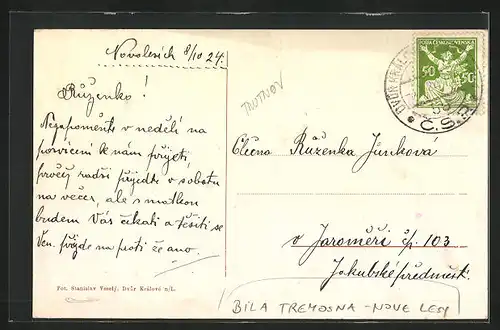 Novolesích 8/10 24.
Růženko!
Nezapomeňte v neděli na
posvícení k nám přijeti,
raděi přijedte v sobotu
na večer, ale s matkou
budem Vás čekati a těšiti se
Ven. přijde na proti že ano.
Fot. Stanislav Veselý, Dvůr Králové n/L.
TRUTNOV
Ctěná Růženka Junková
v Jaroměři čp. 103
Jakubské předměstí.
BÍLA TREMOSNA - NOVE LESY
POŠTA ČESKOSLOVENSKÁ
50 50
DVŮR KRÁL
Č.S.